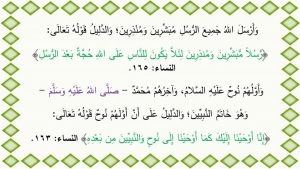 وَأَرْسَلَ اللهُ جَمِيعَ الرُّسُلِ مُبَشِّرِينَ وَمُنْذِرِينَ؛ وَالدَّلِيلُ قَوْلُهُ تَعَالَى:
﴿رُسُلًا مُبَشِّرِينَ وَمُنْذِرِينَ لِئَلَّا يَكُونَ لِلنَّاسِ عَلَى اللهِ حُجَّةٌ بَعْدَ الرُّسُلِ﴾
النساء: ١٦٥.
وَأَوَّلُهُمْ نُوحٌ عَلَيْهِ السَّلَامُ، وَآخِرُهُمْ مُحَمَّدٌ – صَلَّى اللهُ عَلَيْهِ وَسَلَّمَ –
وَهُوَ خَاتَمُ النَّبِيِّينَ؛ وَالدَّلِيلُ عَلَى أَنَّ أَوَّلَهُمْ نُوحٌ قَوْلُهُ تَعَالَى:
﴿إِنَّا أَوْحَيْنَا إِلَيْكَ كَمَا أَوْحَيْنَا إِلَى نُوحٍ وَالنَّبِيِّينَ مِنْ بَعْدِهِ﴾ النساء: ١٦٣.